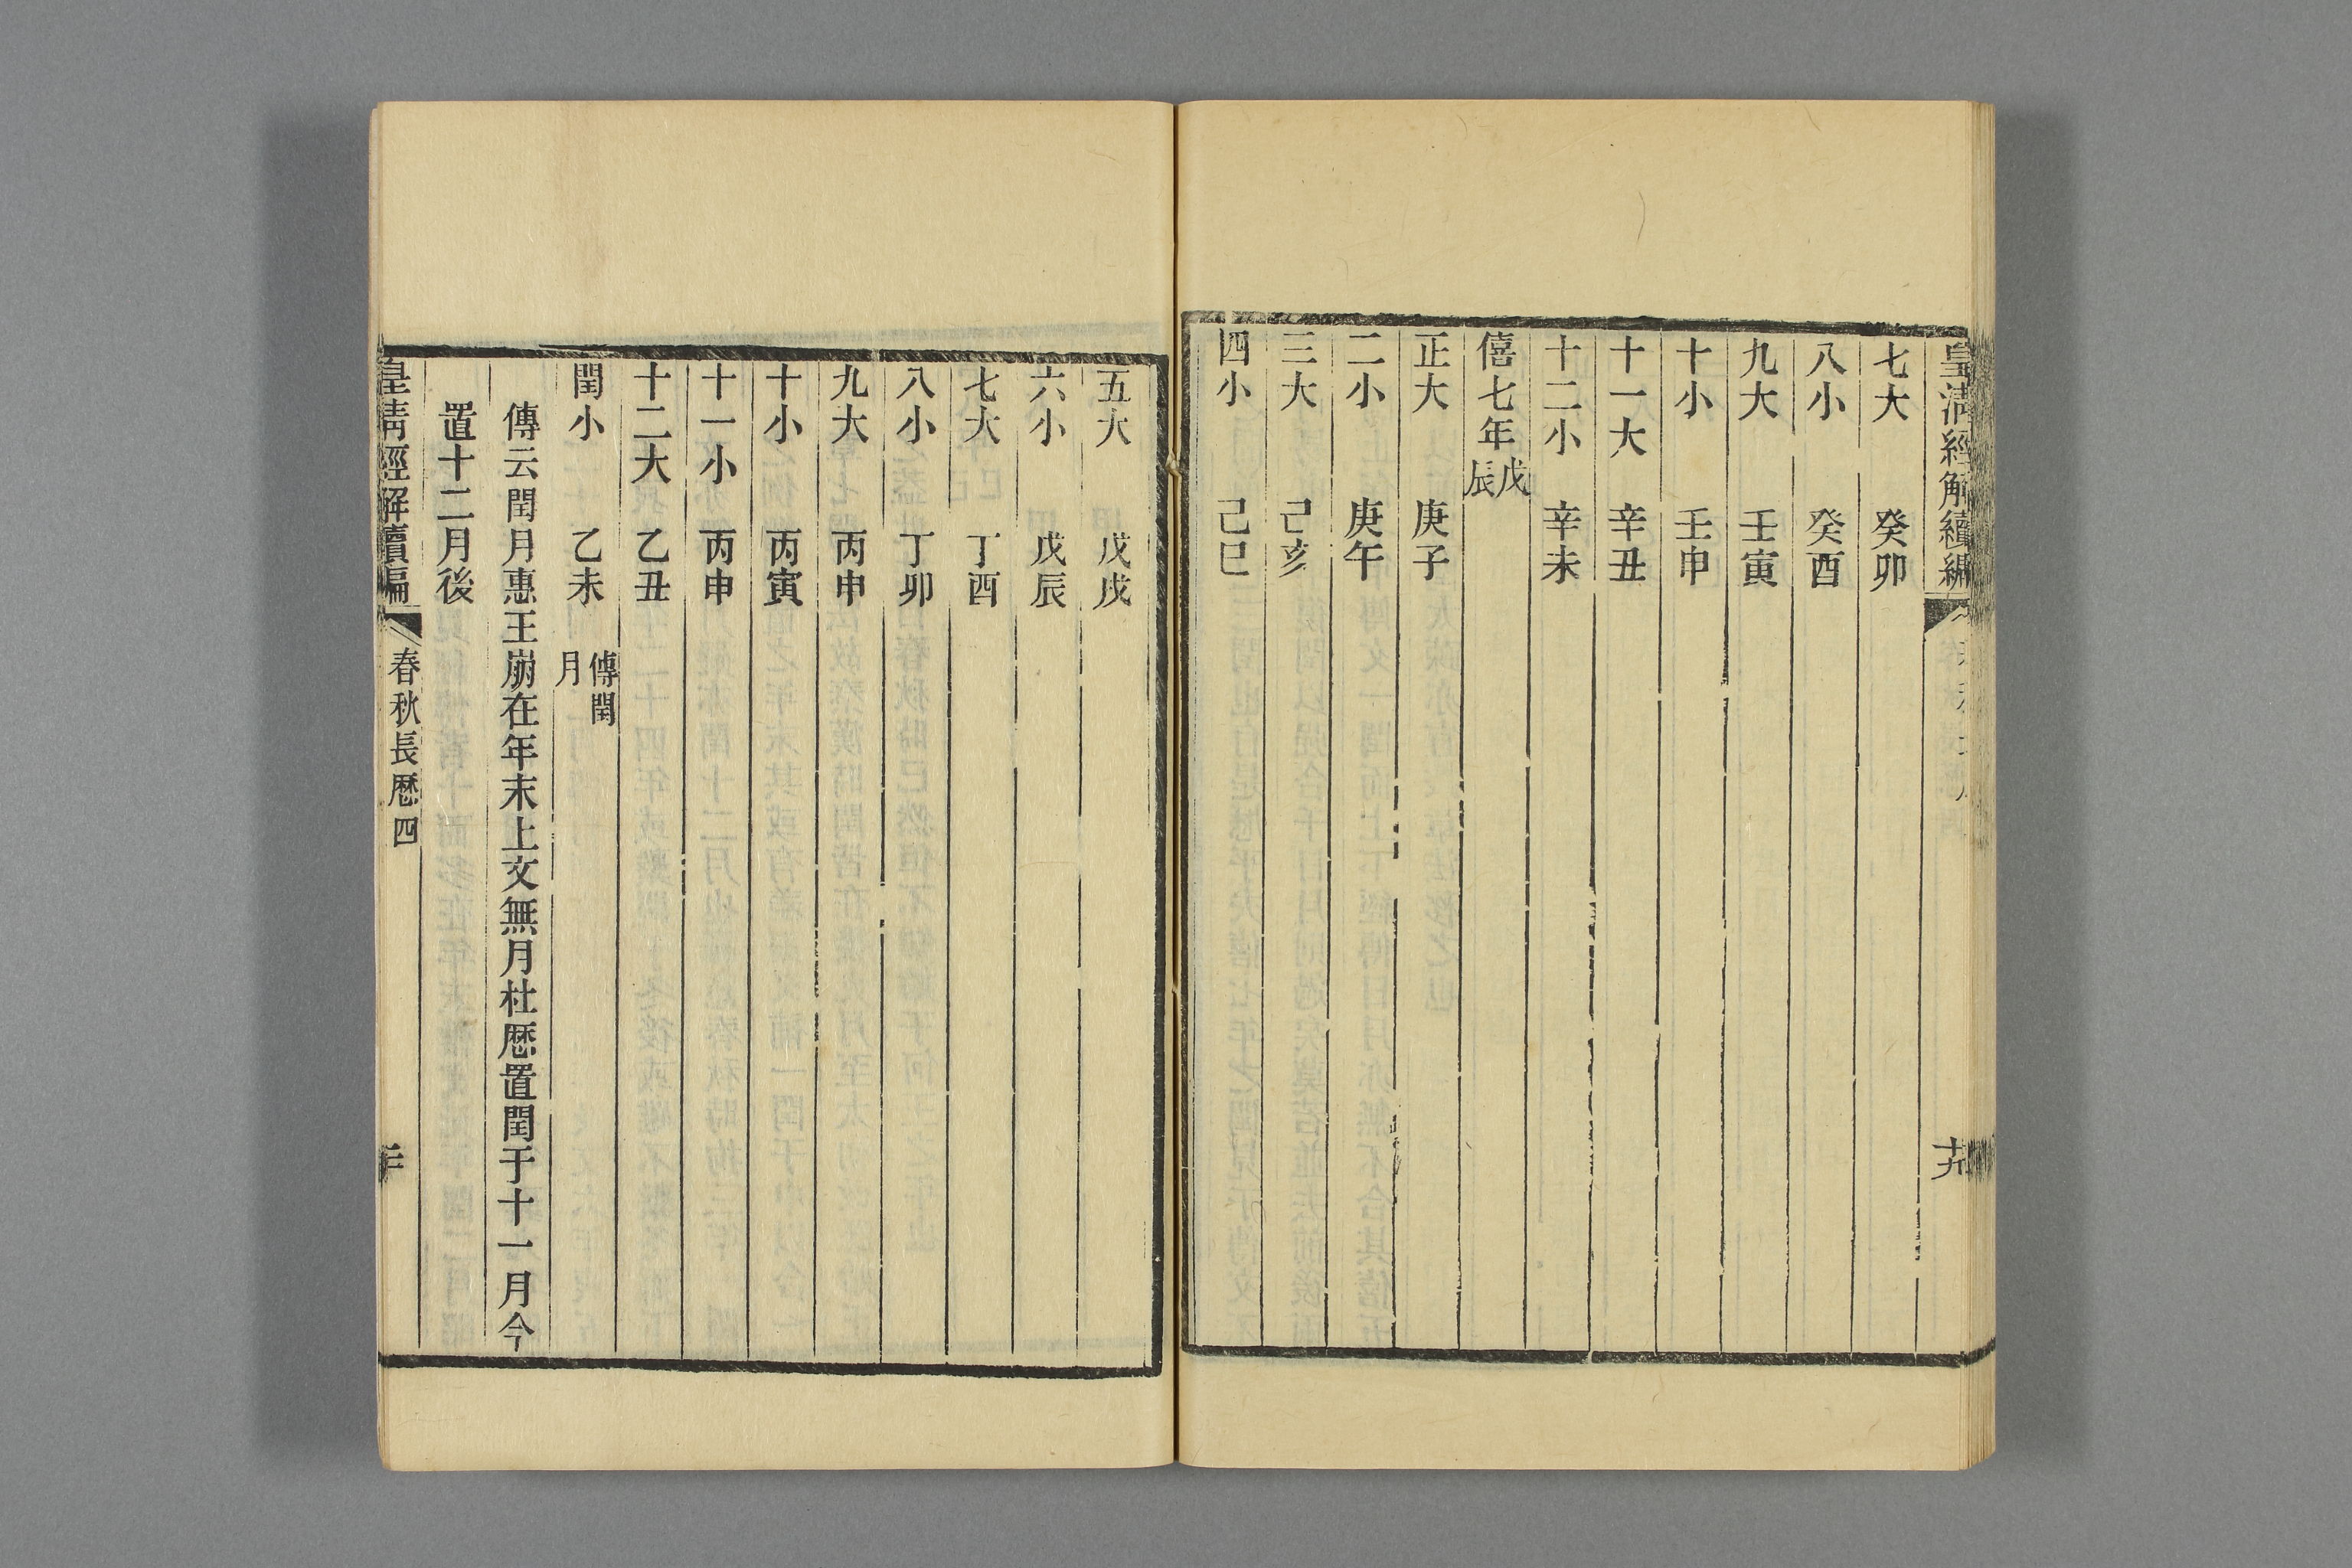 皇清經解續編
十九
七大 癸卯
八小 癸酉
九大 壬寅
十小 壬申
十一大 辛丑
十二小 辛未
僖七年戊辰
正大 庚子
二小 庚午
三大 己亥
四小 己巳
五大 戊戌
六小 戊辰
七大 丁酉
八小 丁卯
九大 丙申
十小 丙寅
十一小 丙申
十二大 乙丑
閏小 乙未 傳閏月
傳云閏月惠王崩在年末上文無月杜厯置閏于十一月今
置十二月後
皇清經解續編 春秋長厯四